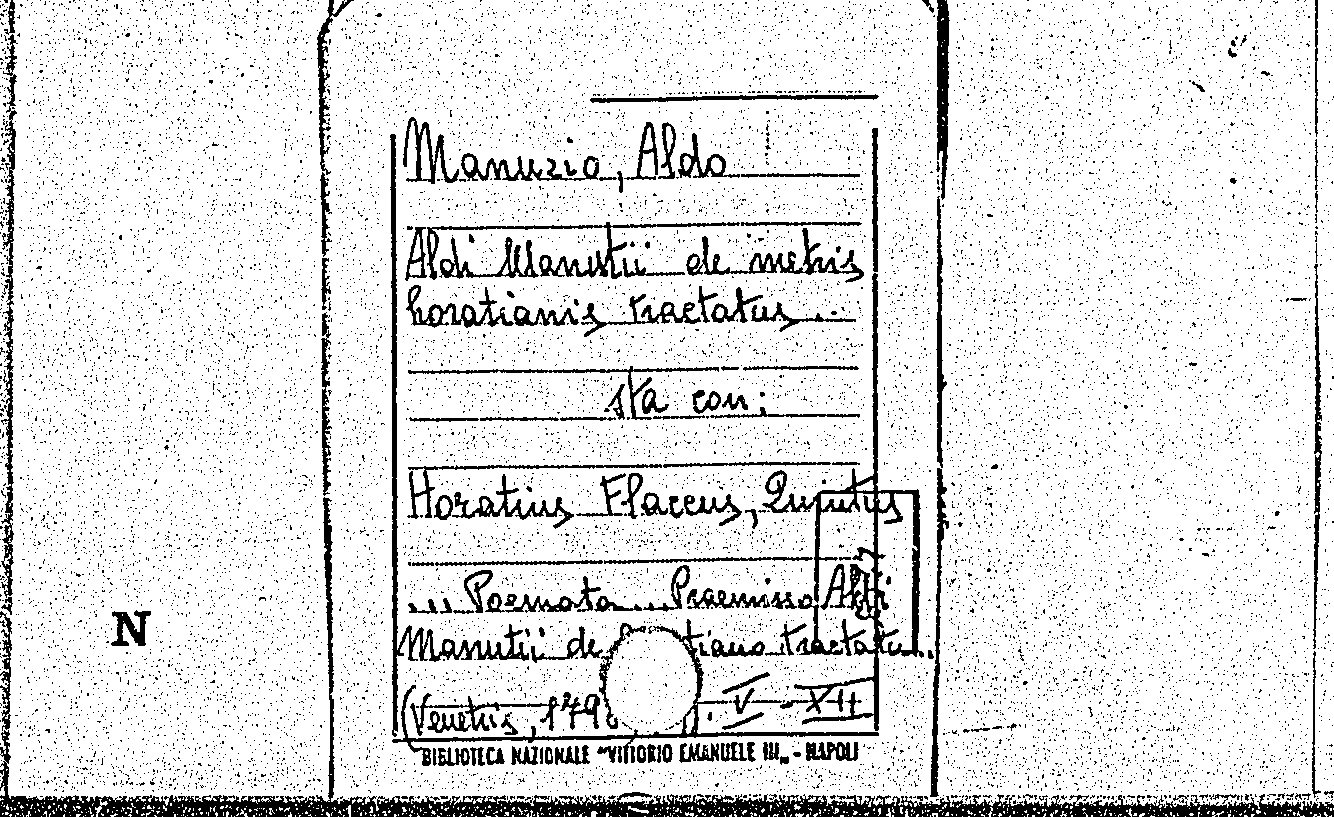 Manuzio, Aldo
Aldi Manutii de metris
horatianis tractatus...
sta con:
Horatius Flaccus, Quintus
... Poemata ... Praemisso Aldi
Manutii de tractatu..
(Venetiis, V - XII
N
BIBLIOTECA NAZIONALE "VITTORIO EMANUELE III„ - NAPOLI